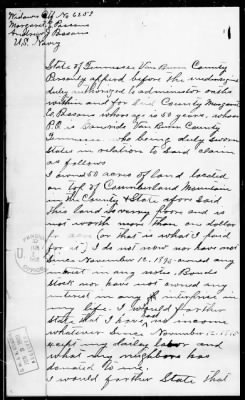 Widows Ctf No 6258
Margaret E Passons
Andrew J Passons
U.S. Navy
State of Tennessee Van Buren County
Personly apperd before the undersigned
duly authorized to administor oaths
within and for Said County Margaret
E. Passons whose age is 50 years. whose
P.O. is Van Buren County
Tennessee who being duly Sworn
States in relation to Said claim
as follows
I owned 50 acres of land located
on top of Cumberland Mountain
in the County & State afore Said
This land is very poor and is
not worth more than one dollar
per acre (or that is what I paid
for it). I do not now nor have not
Since November 12. 1895 owned any
intrest in any notes. Bonds
stock nor have not owned any
interest in any interprise in
my life. I would farther
State that I have no income
whatever Since November 12. 1895
except my dailey labor and
what my neighbors has
donated to me.
I would farther State that